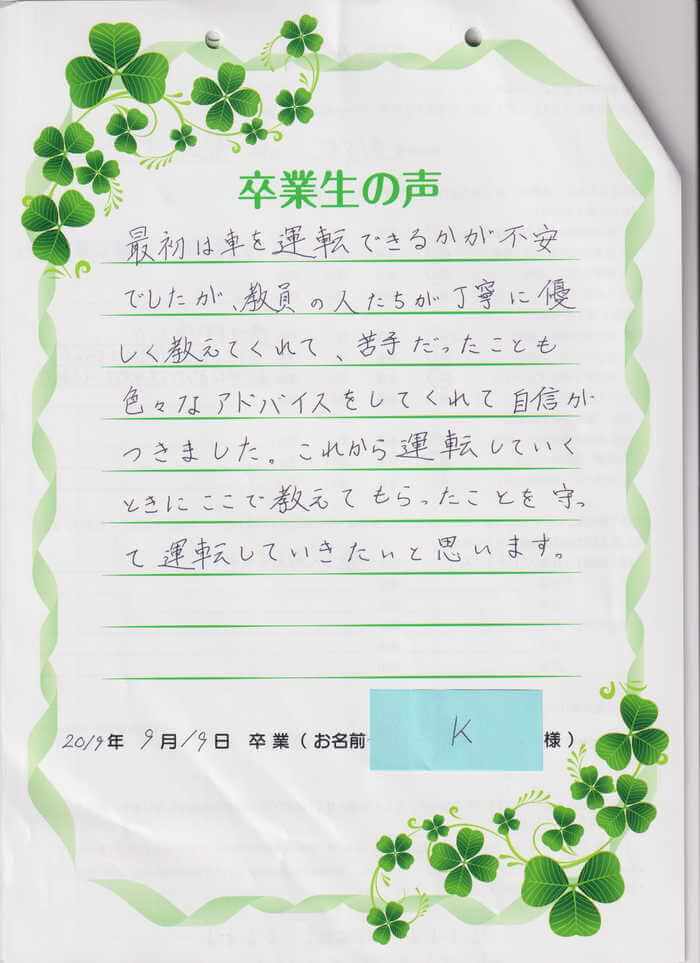 卒業生の声
最初は車を運転できるかが不安
でしたが、教員の人たちが丁寧に優
しく教えてくれて、苦手だったことも
色々なアドバイスをしてくれて自信が
つきました。これから運転していく
ときにここで教えてもらったことを守っ
て運転していきたいと思います。
2019年 9月19日 卒業（お名前 K 様）